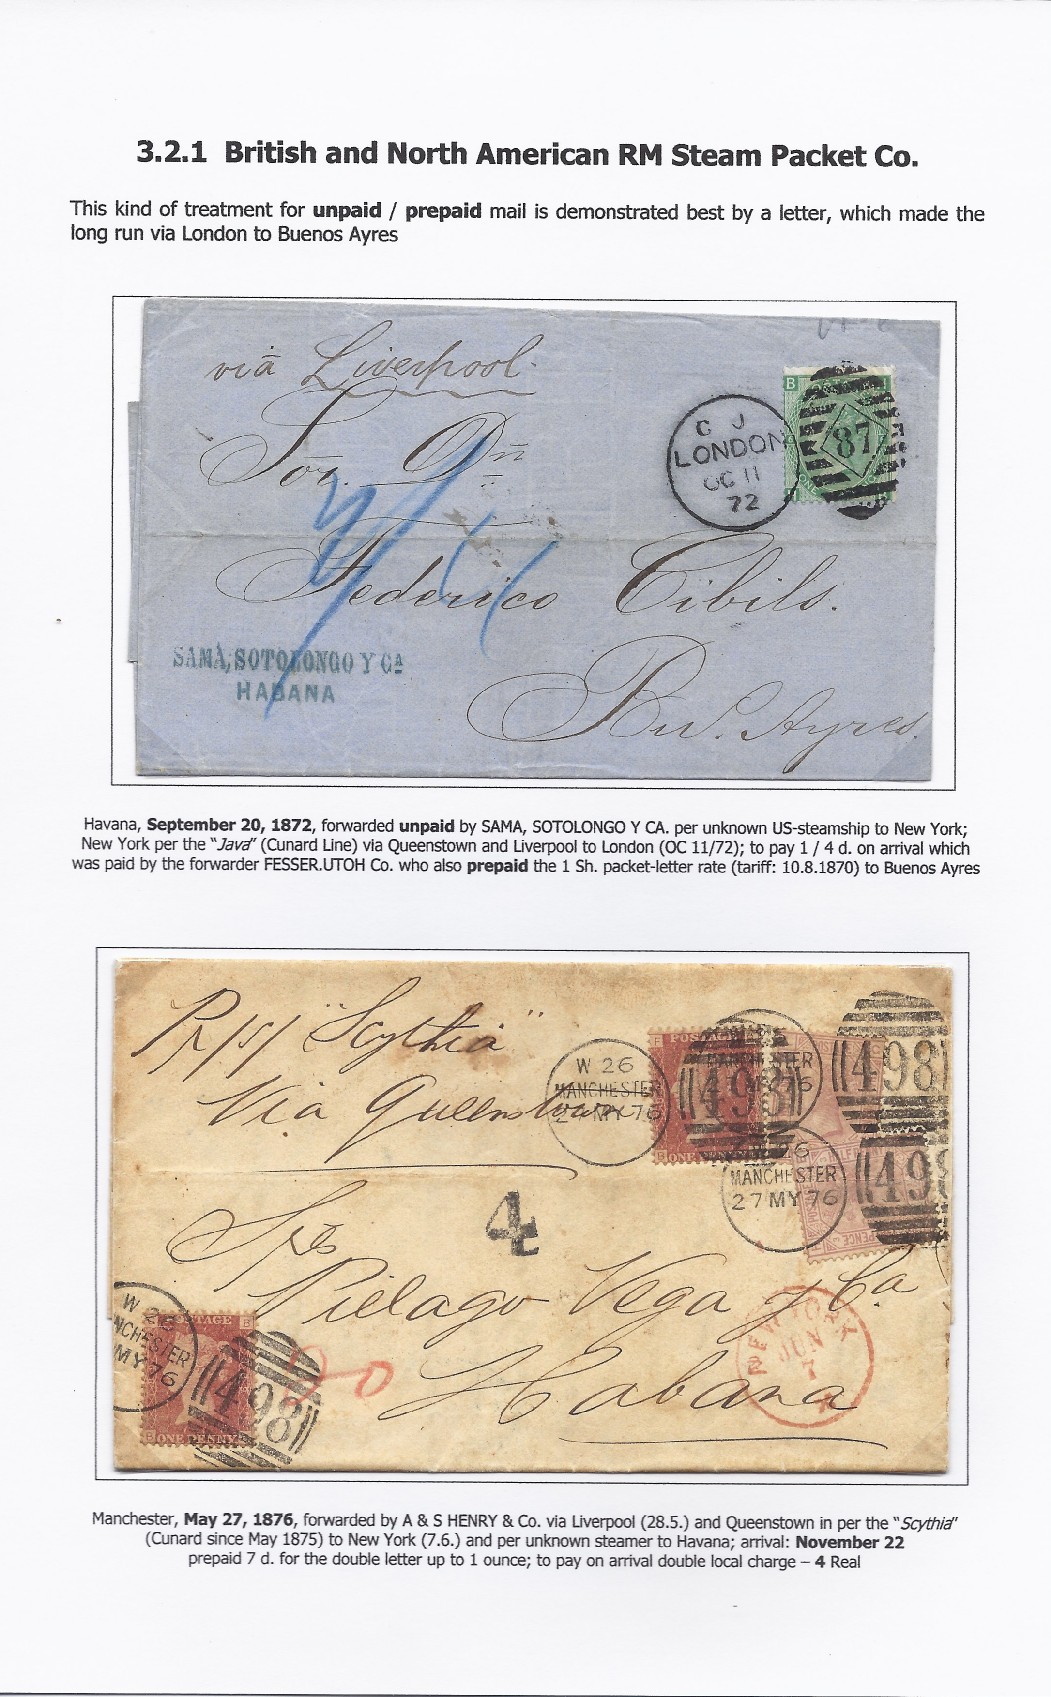 3.2.1 British and North American RM Steam Packet Co.
This kind of treatment for unpaid / prepaid mail is demonstrated best by a letter, which made the
long run via London to Buenos Ayres
viā Liverpool.
Sor. Dn
Federico Cibils.
Bus. Ayres.
SAMÀ, SOTOLONGO Y CA
HABANA
C J
LONDON
OC 11
72
B
87
Havana, September 20, 1872, forwarded unpaid by SAMA, SOTOLONGO Y CA. per unknown US-steamship to New York;
New York per the "Java" (Cunard Line) via Queenstown and Liverpool to London (OC 11/72); to pay 1 / 4 d. on arrival which
was paid by the forwarder FESSER.UTOH Co. who also prepaid the 1 Sh. packet-letter rate (tariff: 10.8.1870) to Buenos Ayres
Pr/s/ "Scythia"
Via Queenstown
Sres
Pielago Vega y Ca.
Habana
4
W 26
MANCHESTER
27 MY 76
F POSTAGE
498
B ONE PENNY
MANCHESTER
498
MANCHESTER
27 MY 76
498
NEW YORK
JUN
7
W 26
NCHESTER
MY 76
STAGE B
498
B ONE PENNY
Manchester, May 27, 1876, forwarded by A & S HENRY & Co. via Liverpool (28.5.) and Queenstown in per the "Scythia"
(Cunard since May 1875) to New York (7.6.) and per unknown steamer to Havana; arrival: November 22
prepaid 7 d. for the double letter up to 1 ounce; to pay on arrival double local charge – 4 Real